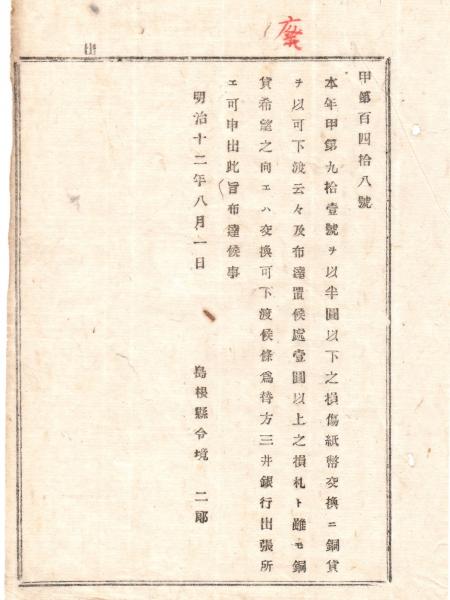 廃
甲第百四拾八號
本年甲第九拾壹號ヲ以半圓以下之損傷紙幣交換ニ銅貨
ヲ以可下渡云々及布達置候處壹圓以上之損札ト雖モ銅
貨希望之向エハ交換可下渡候條爲替方三井銀行出張所
エ可申出此旨布達候事
明治十二年八月一日
島根縣令境 二郎